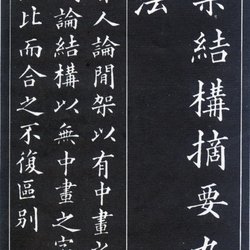 架結構摘要九
法
人論閒架以有中畫
論結構以無中畫之字
比而合之不復區別